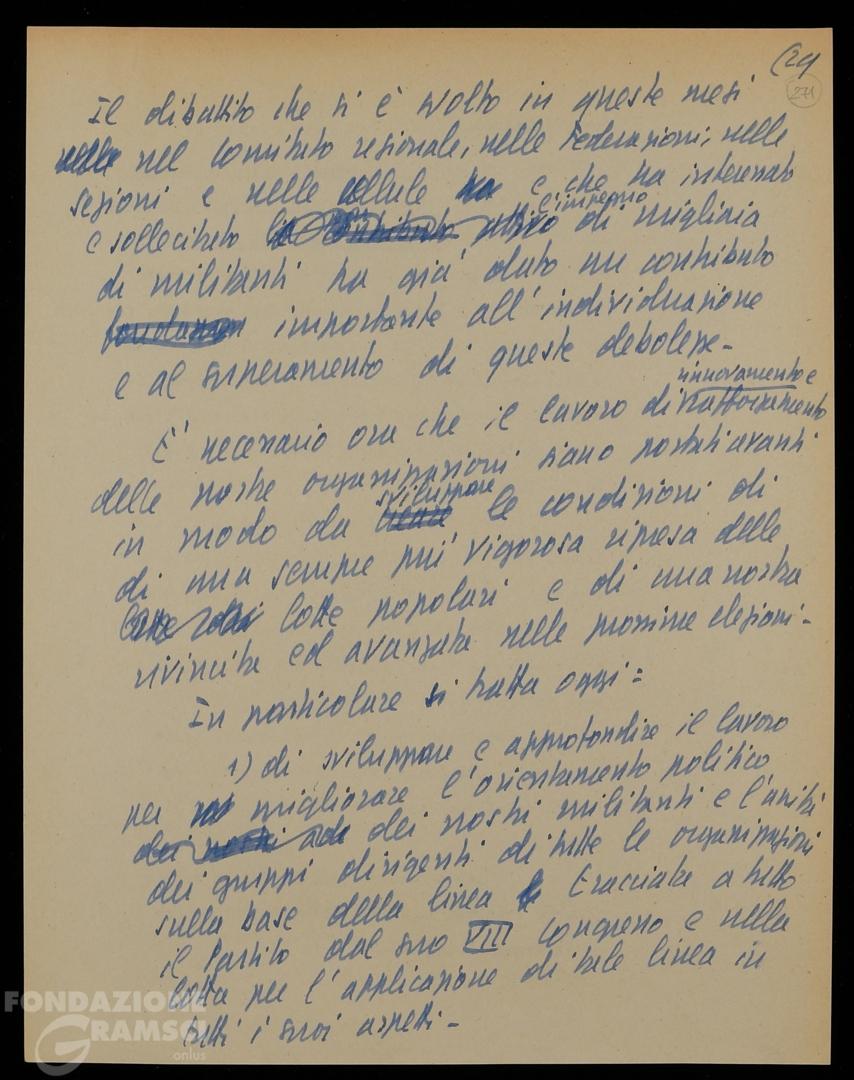 (29
271
Il dibattito che si è svolto in queste mesi
nel Comitato regionale, nelle Federazioni, nelle
sezioni e nelle cellule e che ha interessato
e sollecitato l'impegno di migliaia
di militanti ha già dato un contributo
importante all'individuazione
e al superamento di queste debolezze -
rinnovamento e
È necessario ora che il lavoro di rafforzamento
delle nostre organizzazioni siano portati avanti
sviluppare
in modo da creare le condizioni di
di una sempre più vigorosa ripresa delle
lotte popolari e di una nostra
rivincita ed avanzata nelle prossime elezioni -
In particolare si tratta oggi:
1) di sviluppare e approfondire il lavoro
per migliorare l'orientamento politico
dei nostri militanti e l'unità
dei gruppi dirigenti di tutte le organizzazioni
sulla base della linea tracciata a tutto
il Partito dal suo VIII congresso e nella
lotta per l'applicazione di tale linea in
tutti i suoi aspetti -
FONDAZIONE
GRAMSCI
onlus